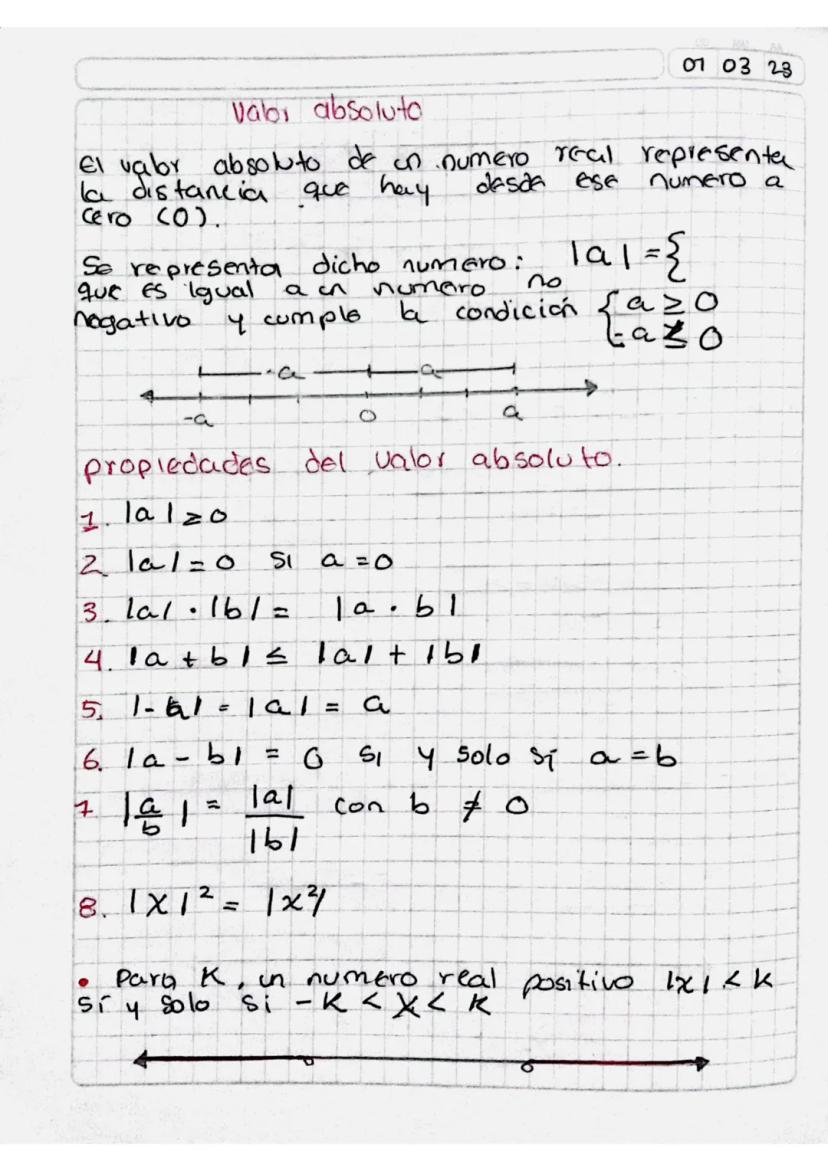 07 03 23
Valor absoluto
El valor absoluto de un numero real representa
la distancia que hay desde ese numero a
cero (0).
Se representa dicho numero: |a| = {
que es igual a un numero no
negativo y cumple la condición { a ≥ 0
-a ≤ 0
-a a
-a 0 a
propiedades del valor absoluto.
1. |a| ≥ 0
2. |a| = 0 si a = 0
3. |a| · |b| = |a · b|
4. |a + b| ≤ |a| + |b|
5. |-a| = |a| = a
6. |a - b| = 0 si y solo sí a = b
7 |a/b| = |a|/|b| con b ≠ 0
8. |x|² = |x²|
• Para K, un numero real positivo |x| < K
sí y solo si - K < X < K